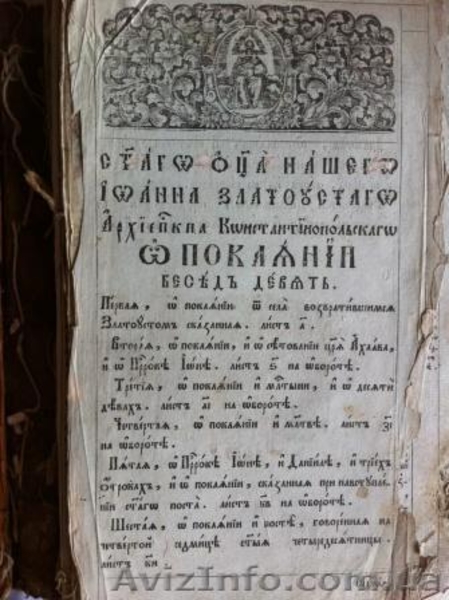 СТ҃АГѠ ѺЦ҃А НА́ШЕГѠ
ІѠА́ННА ЗЛАТОꙊ́СТАГѠ
А҆рхїеп҃кпа Кѡнстантїнопо́льскагѡ
Ѡ҆ ПОКАѦ́НЇИ
БЕСѢ́ДЪ ДЕ́ВѦТЬ.
Пе́рваѧ, ѡ҆ покаѧ́нїи ѿ села̀ возврати́вшимсѧ
Златоꙋ́стомъ ска́занная. ли́стъ а҃.
Втора́ѧ, ѡ҆ покаѧ́нїи, и҆ ѡ҆ сѣ́тованїи цр҃ѧ̀ А҆хаа́ва,
и҆ ѡ҆ Прⷪ҇ро́кѣ І҆ѡ́нѣ. ли́стъ на ѡ҆боро́тѣ.
Тре́тїѧ, ѡ҆ покаѧ́нїи и҆ мл҃тыни, и҆ ѡ҆ десѧтѝ
дѣ́вахъ. ли́стъ а҃і на ѡ҆боро́тѣ.
Четве́ртаѧ, ѡ҆ покаѧ́нїи и҆ мл҃твѣ. ли́стъ
на ѡ҆боро́тѣ.
Пѧ́таѧ, ѡ҆ Прⷪ҇ро́кѣ І҆ѡ́нѣ, и҆ Данїи́лѣ, и҆ трїе́хъ
ѻ҆́трокахъ, и҆ ѡ҆ покаѧ́нїи, ска́занная при настꙋпле́-
нїи ст҃а́гѡ поста̀. ли́стъ к҃в на ѡ҆боро́тѣ.
Шеста́ѧ, ѡ҆ покаѧ́нїи и҆ по́стѣ, говоре́нная на
четве́ртой седми́цѣ ст҃ы́ѧ четыредесѧ́тницы.
ли́стъ к҃и
AvizInfo.com.ua